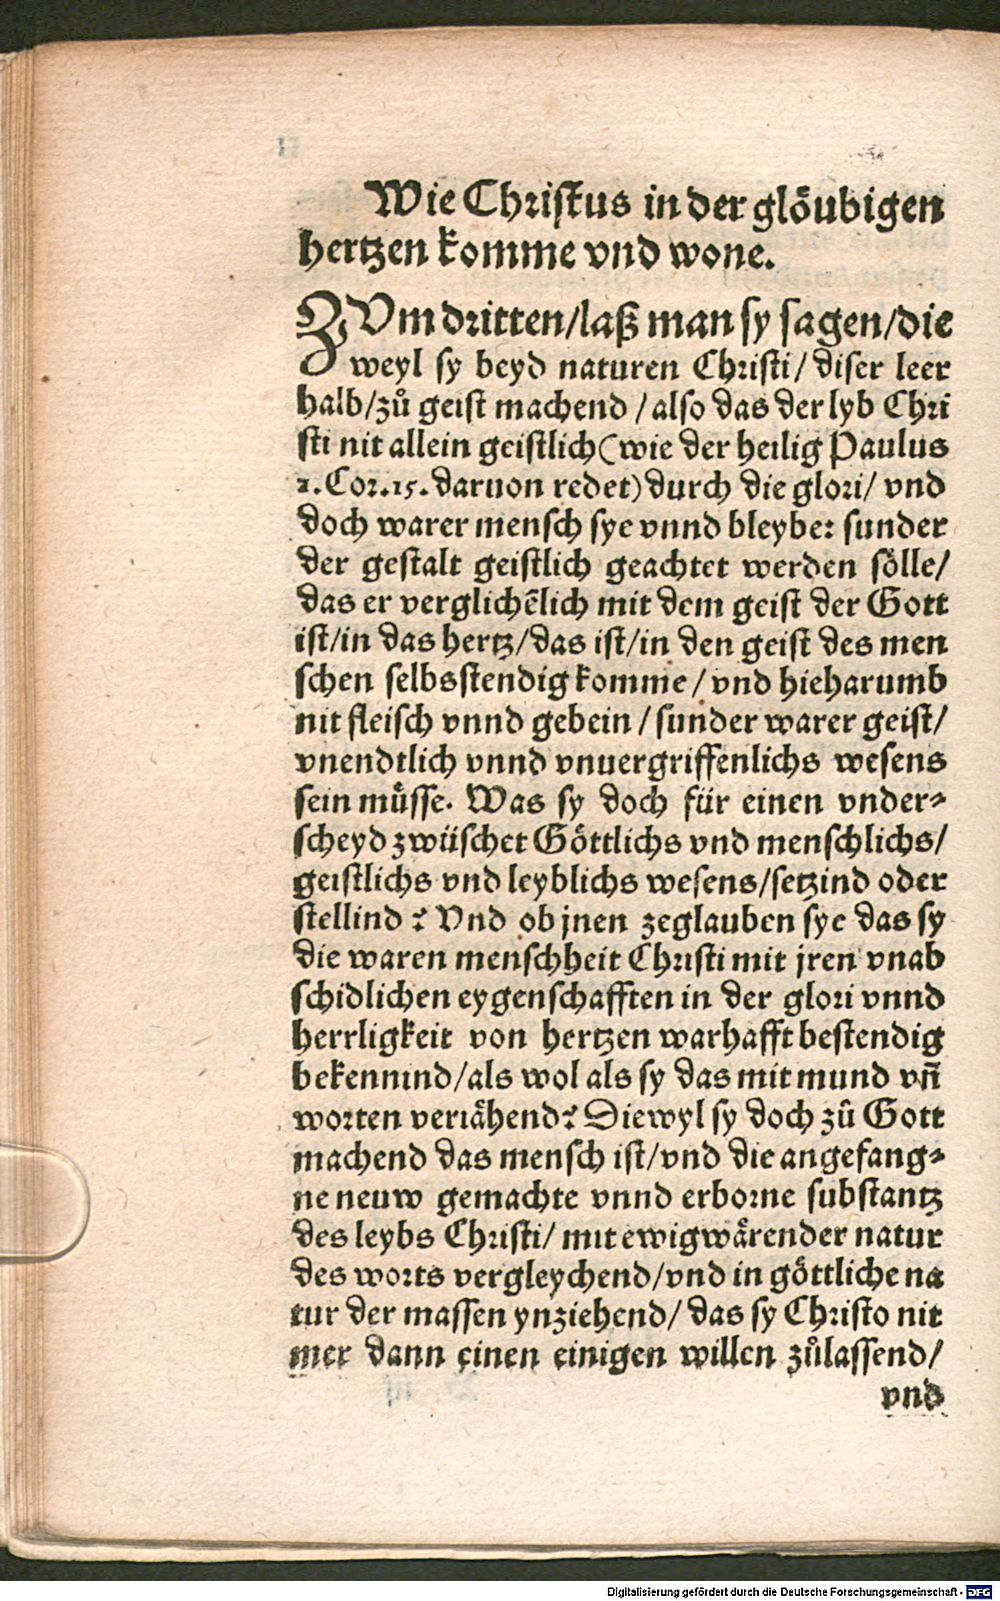 Wie Christus in der glöubigen
hertzen komme vnd wone.
ZVm dritten/laß man sy sagen/die
weyl sy beyd naturen Christi/ diser leer
halb/zů geist machend / also das der lyb Chri
sti nit allein geistlich (wie der heilig Paulus
1.Cor.15. daruon redet) durch die glori/ vnd
doch warer mensch sye vnnd bleybe: sunder
der gestalt geistlich geachtet werden sölle/
das er verglichēlich mit dem geist der Gott
ist/in das hertz/das ist/in den geist des men
schen selbsstendig komme / vnd hieharumb
nit fleisch vnnd gebein / sunder warer geist/
vnendtlich vnnd vnuergriffenlichs wesens
sein müsse. Was sy doch für einen vnder-
scheyd zwüschet Göttlichs vnd menschlichs/
geistlichs vnd leyblichs wesens/setzind oder
stellind? Vnd ob jnen zeglauben sye das sy
die waren menschheit Christi mit jren vnab
schidlichen eygenschafften in der glori vnnd
herrligkeit von hertzen warhafft bestendig
bekennind/als wol als sy das mit mund vñ
worten veriähend? Diewyl sy doch zů Gott
machend das mensch ist/vnd die angefang-
ne neuw gemachte vnnd erborne substantz
des leybs Christi/ mit ewigwärender natur
des worts vergleychend/vnd in göttliche na
tur der massen ynziehend/ das sy Christo nit
mer dann einen einigen willen zůlassend/
vnd
Digitalisierung gefördert durch die Deutsche Forschungsgemeinschaft - DFG